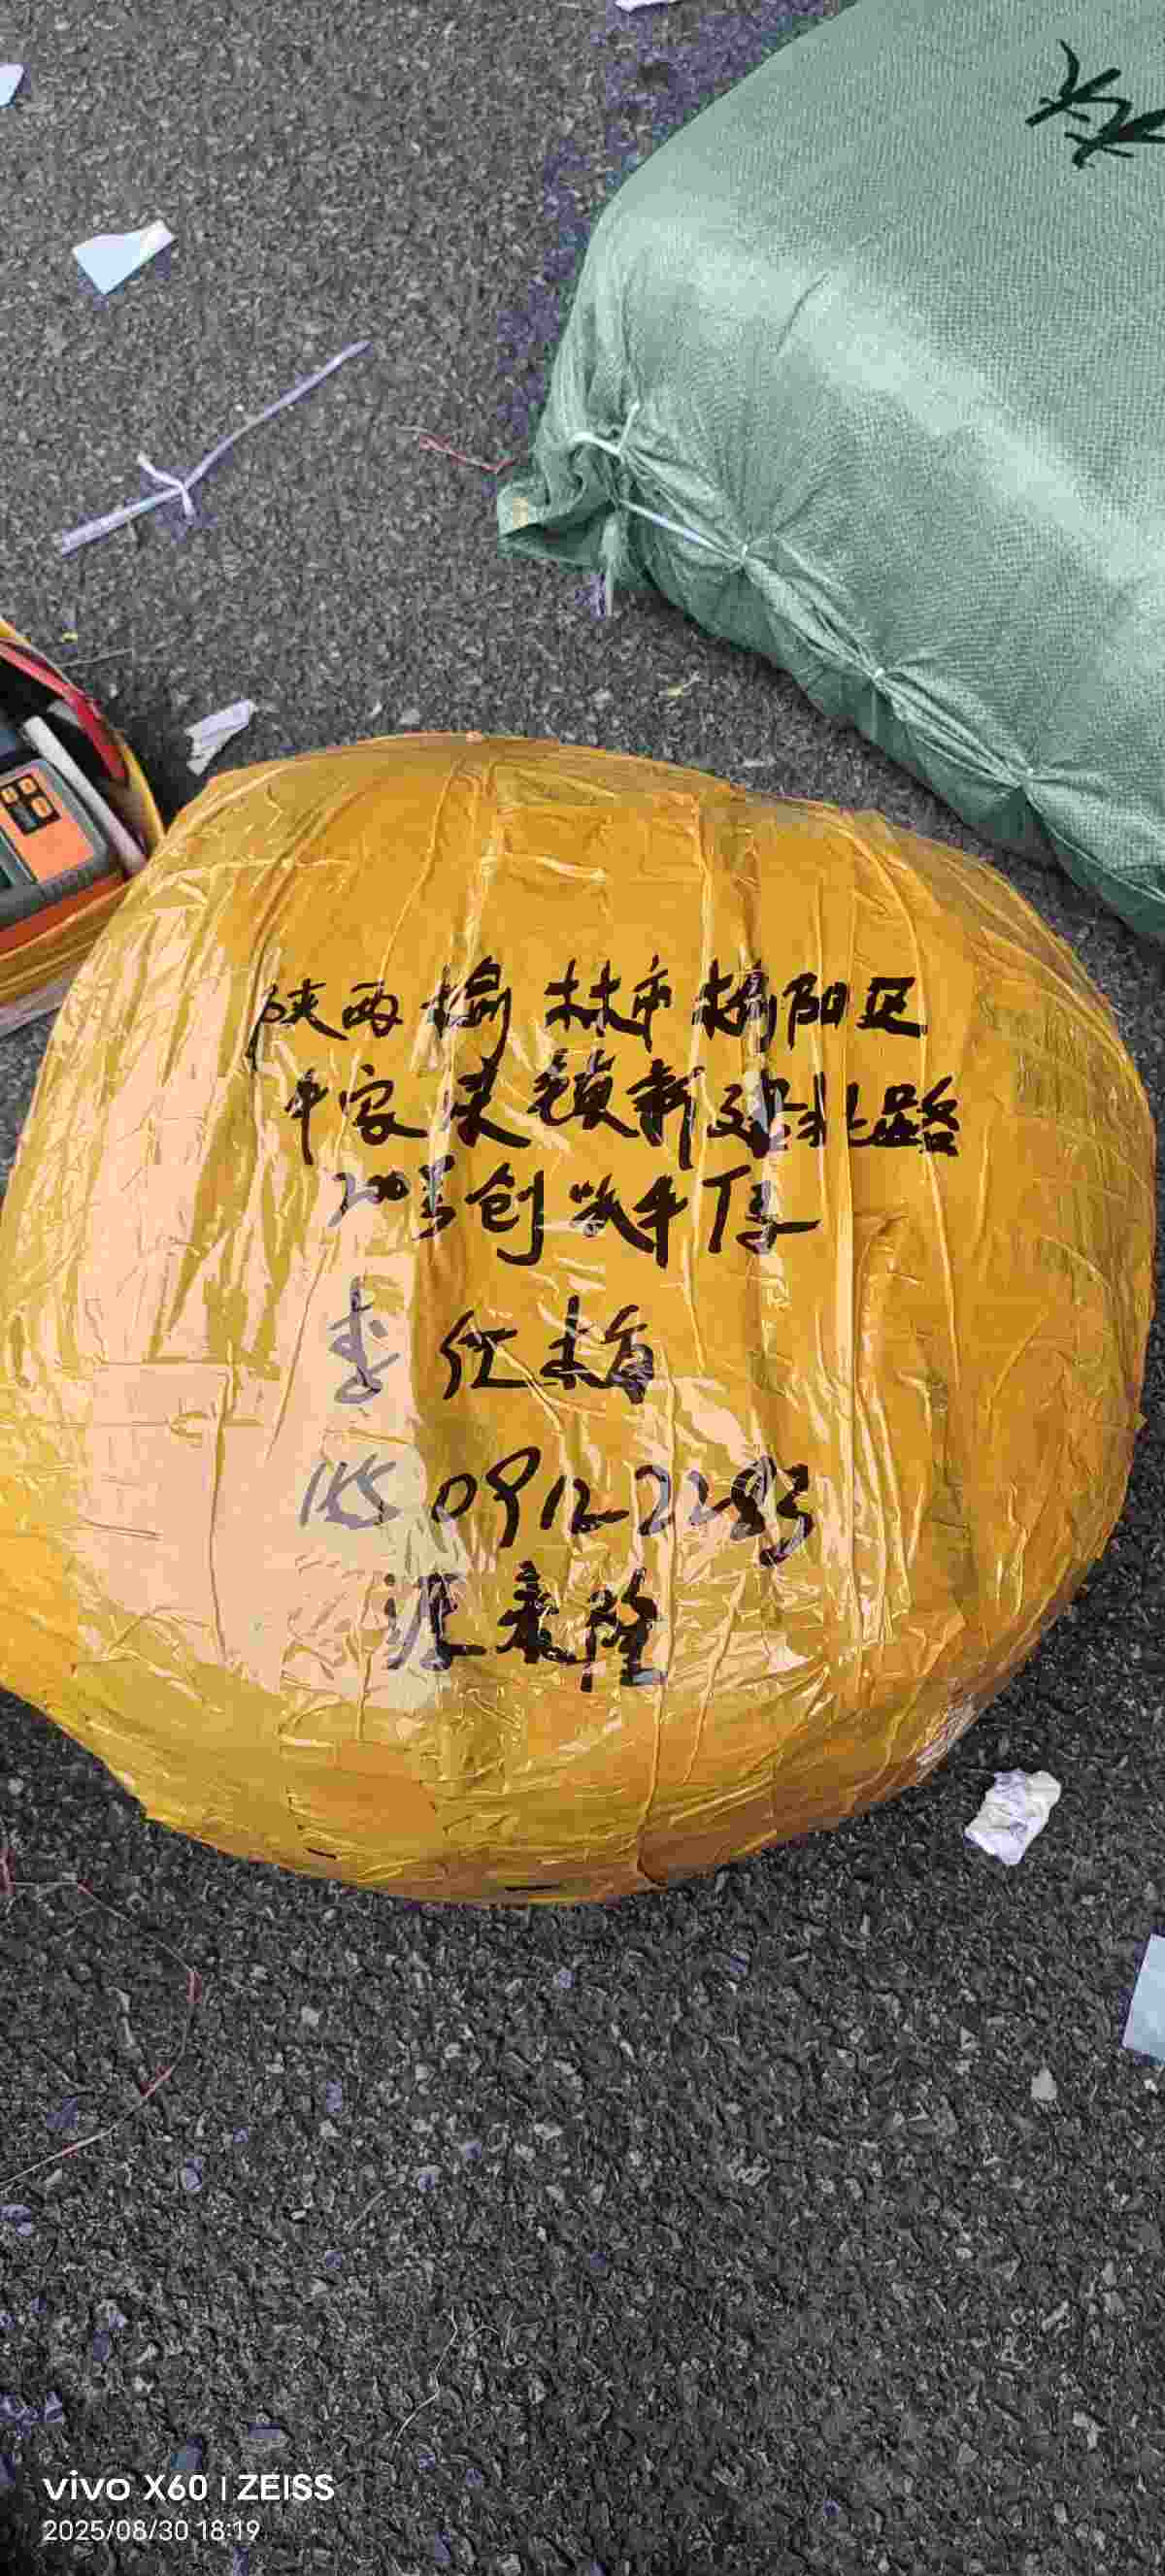 陕西榆林市榆阳区
牛家梁镇新建北路
20号创业牛仔
李红梅
185 0912 2283
源来隆
vivo X60 | ZEISS
2025/08/30 18:19